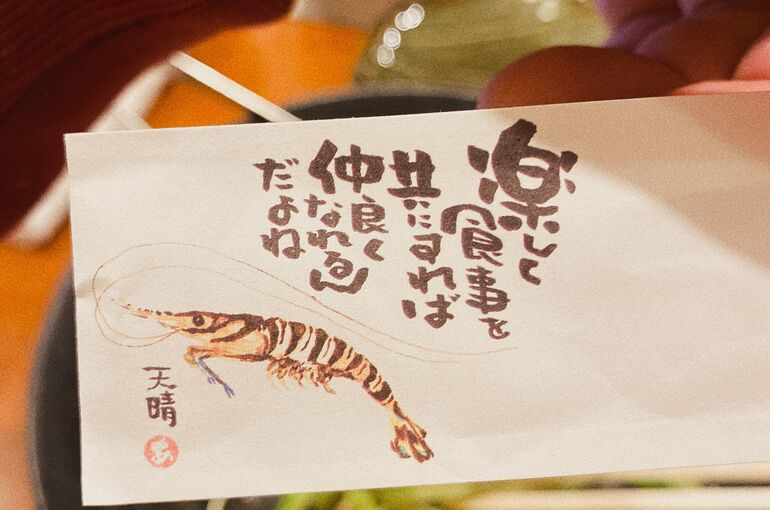 楽しく
食事を
共にすれば
仲良く
なれるし
だよね
天晴